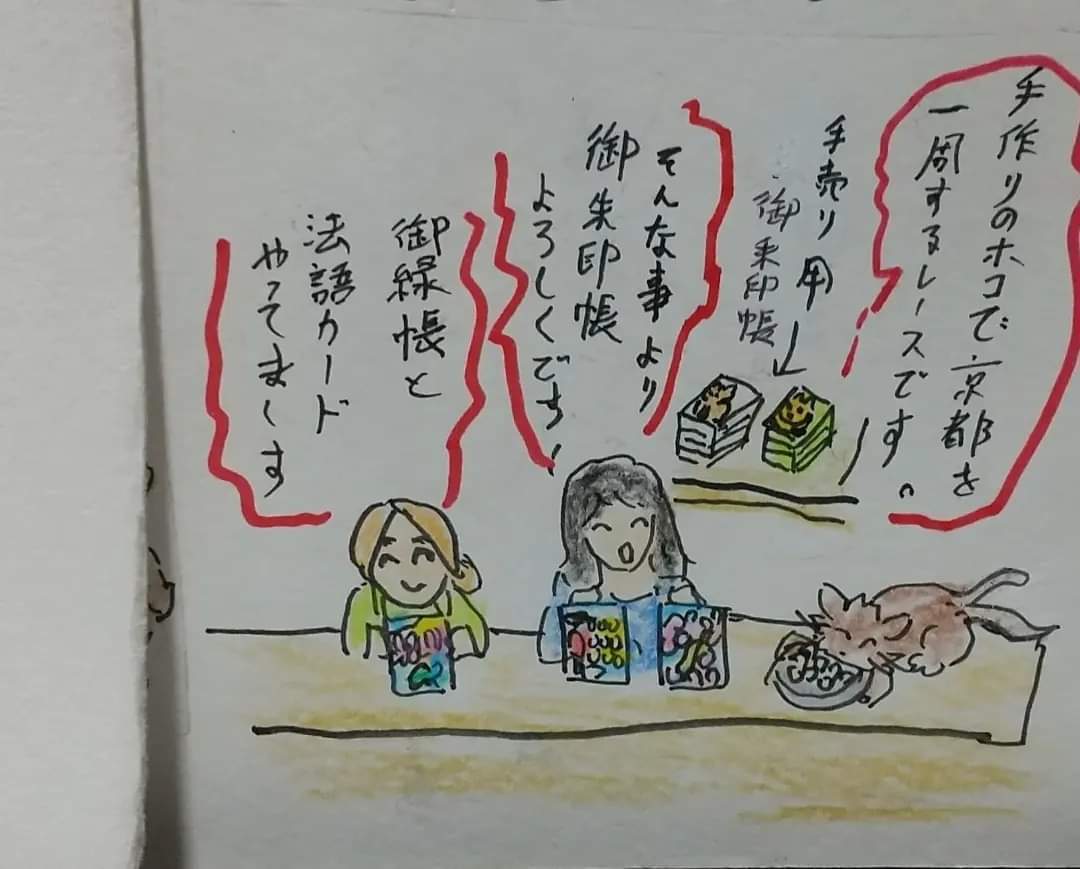 手作りのホコで京都を
一周するレースです。
手売り用
御朱印帳
そんな事より
御朱印帳
よろしくでち!
御縁帳と
法語カード
やってまーす